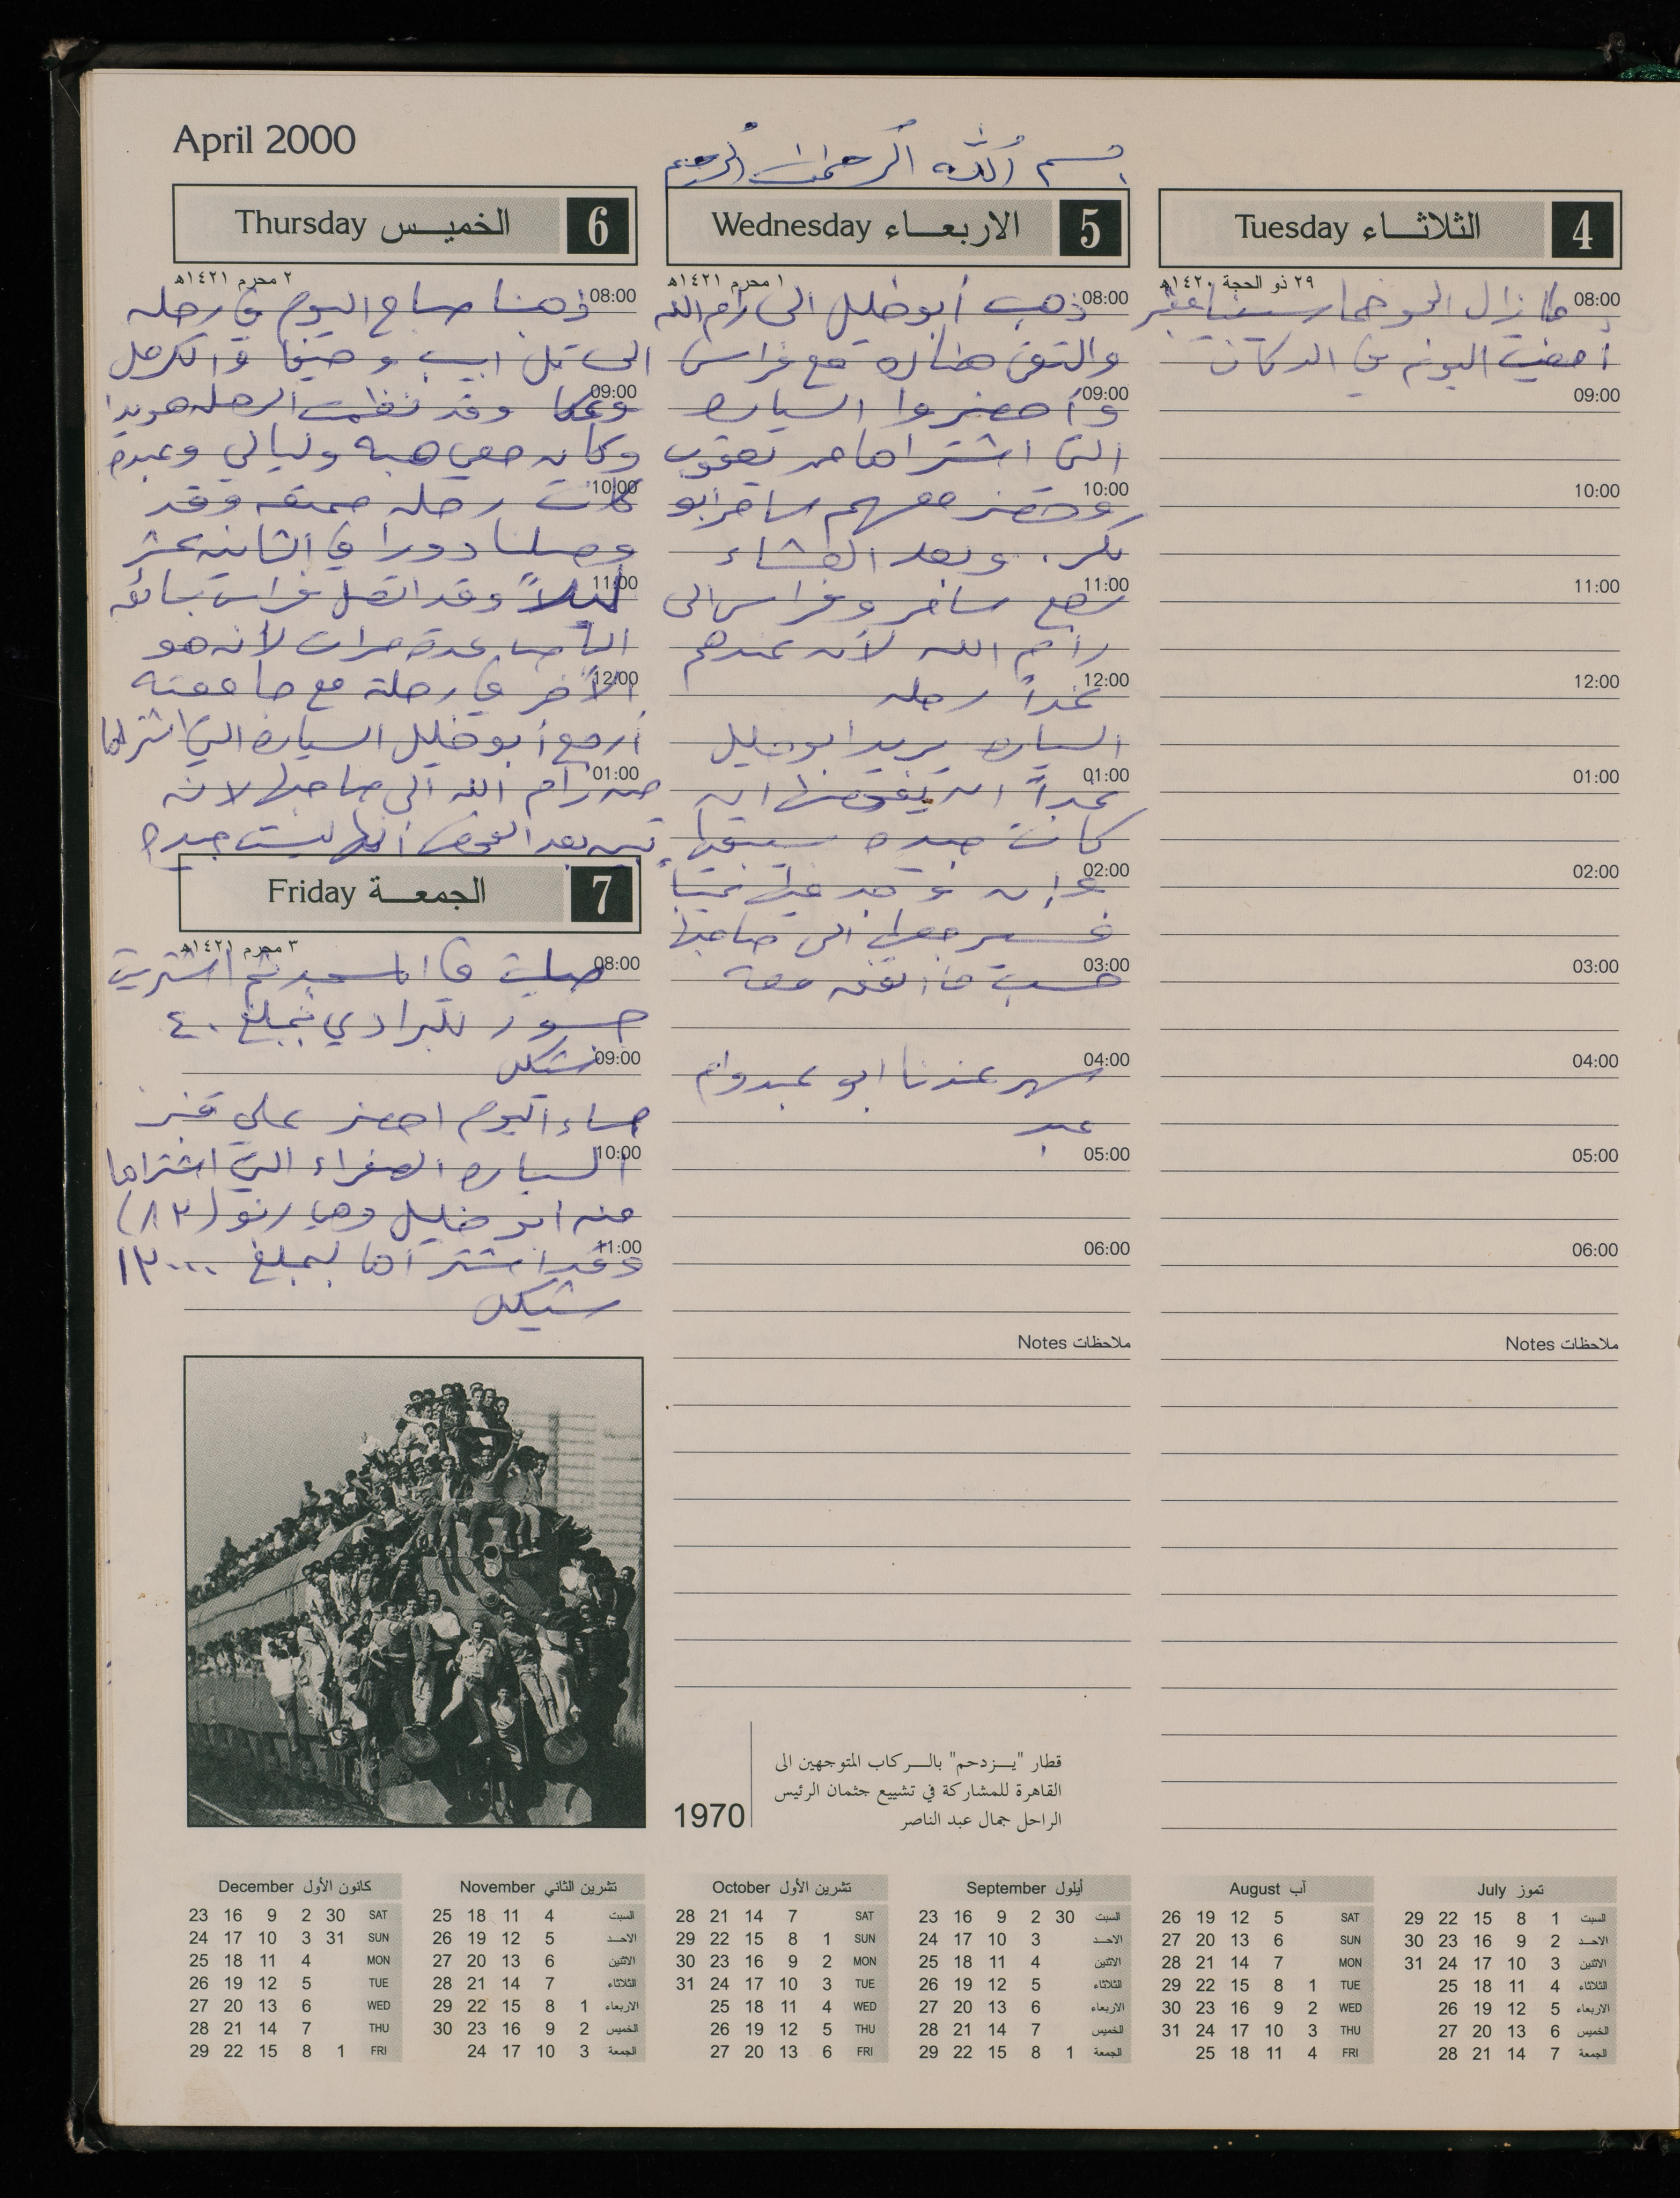 April 2000
بسم الله الرحمن الرحيم
4 الثلاثاء Tuesday
٢٩ ذو الحجة ١٤٢٠هـ
08:00 ما زال الجو خماسينيا مغبر
أمضيت اليوم في الدكان
09:00
10:00
11:00
12:00
01:00
02:00
03:00
04:00
05:00
06:00
ملاحظات Notes
5 الاربعاء Wednesday
١ محرم ١٤٢١هـ
08:00 ذهب أبو خليل الى رام الله
والتقى هناك مع فراس
09:00 وأحضروا السياره
التي اشتراها من يعقوب
10:00 وحضر معهم سامر أبو
بكر. وبعد العشاء
11:00 رجع سامر وفراس الى
رام الله لأن عندهم
12:00 غداً رحله
السياره يريد ابو خليل
01:00 غداً ان يفحصها ان
كانت جيده سيبقيها
02:00 وإن وجد فيها عيباً
فسيرجعها الى صاحبها
03:00 حسب ما اتفق معه
04:00 سهر عندنا ابو عبد وام
عبد
05:00
06:00
ملاحظات Notes
6 الخميس Thursday
٢ محرم ١٤٢١هـ
08:00 ذهبنا صباح اليوم في رحله
الى تل ابيب وحيفا والكرمل
09:00 وعكا وقد نظمت الرحله هويدا
وكان معي هبه وليالي وعبده
10:00 كانت رحله ممتعه وقد
وصلنا دورا في الثانيه عشر
11:00 ليلاً وقد اتصل فراس بسائق
الباص عدة مرات لأنه هو
12:00 الآخر في رحلة مع جامعته
أرجع أبو خليل السياره التي اشتراها
01:00 من رام الله الى صاحبها لانه
تبين بعد الفحص أنها ليست جيده
7 الجمعة Friday
٣ محرم ١٤٢١هـ
08:00 صليت في المسجد ثم اشتريت
جسور للبرادي بمبلغ ٤٠
09:00 شيكل
مساء اليوم احضر علي قنبر
10:00 السياره الصفراء التي اشتراها
منه ابو خليل وهي رنو (٨٢)
11:00 وقد اشتراها بمبلغ ١٢٠٠٠
شيكل
1970
قطار "يزدحم" بالركاب المتوجهين الى
القاهرة للمشاركة في تشييع جثمان الرئيس
الراحل جمال عبد الناصر
تموز July
السبت 1 8 15 22 29
الاحد 2 9 16 23 30
الاثنين 3 10 17 24 31
الثلاثاء 4 11 18 25
الاربعاء 5 12 19 26
الخميس 6 13 20 27
الجمعة 7 14 21 28
آب August
SAT 5 12 19 26
SUN 6 13 20 27
MON 7 14 21 28
TUE 1 8 15 22 29
WED 2 9 16 23 30
THU 3 10 17 24 31
FRI 4 11 18 25
أيلول September
السبت 30 2 9 16 23
الاحد 3 10 17 24
الاثنين 4 11 18 25
الثلاثاء 5 12 19 26
الاربعاء 6 13 20 27
الخميس 7 14 21 28
الجمعة 1 8 15 22 29
تشرين الأول October
SAT 7 14 21 28
SUN 1 8 15 22 29
MON 2 9 16 23 30
TUE 3 10 17 24 31
WED 4 11 18 25
THU 5 12 19 26
FRI 6 13 20 27
تشرين الثاني November
السبت 4 11 18 25
الاحد 5 12 19 26
الاثنين 6 13 20 27
الثلاثاء 7 14 21 28
الاربعاء 1 8 15 22 29
الخميس 2 9 16 23 30
الجمعة 3 10 17 24
كانون الأول December
SAT 30 2 9 16 23
SUN 31 3 10 17 24
MON 4 11 18 25
TUE 5 12 19 26
WED 6 13 20 27
THU 7 14 21 28
FRI 1 8 15 22 29